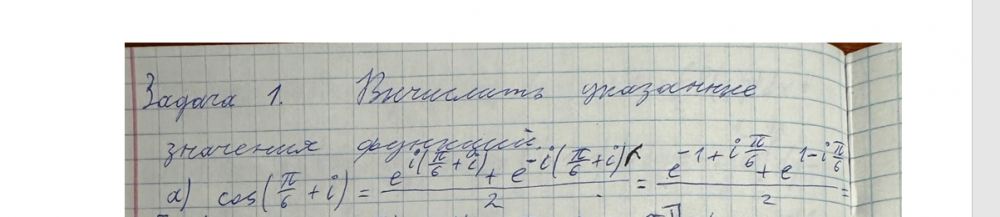 Задача 1. Вычислить указанные
значения функций.
а) cos(π/6 + i) = (e^{i(π/6+i)} + e^{-i(π/6+i)})/2 = (e^{-1+iπ/6} + e^{1-iπ/6})/2 =